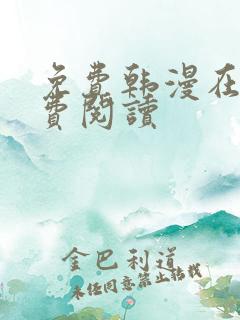 免费韩漫在
费閱讀
金巴利道
未经同意禁止转载